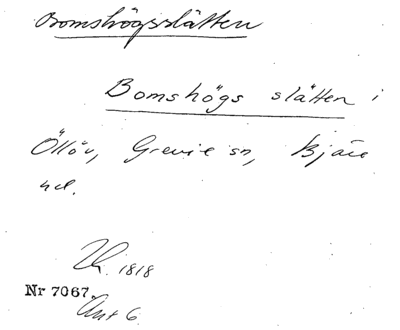 Bomshögsslätten
Bomshögs slätten i
Öllöv, Grevie sn, Bjäre
hd.
1818
Nr 7067.
Ant 6